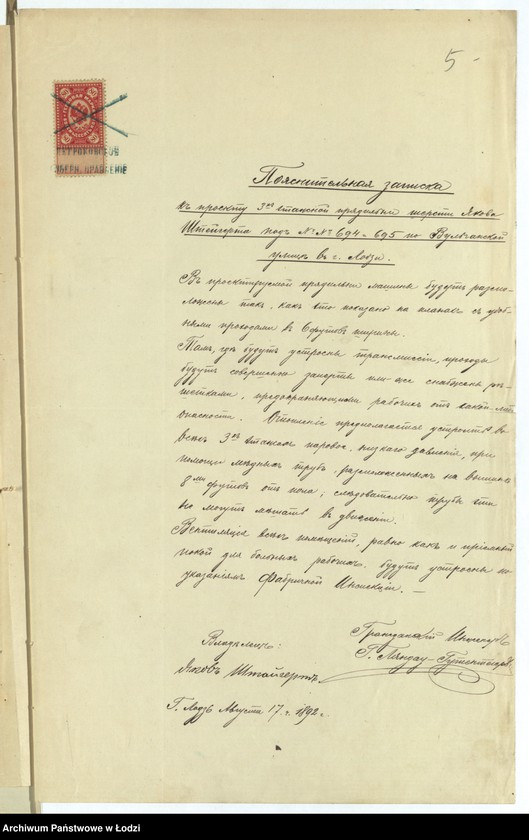 5
ПЕТРОКОВСКОЕ
ГУБЕРН. ПРАВЛЕНІЕ
Пояснительная записка
къ проэкту 3хъ этажной прядильни шерсти Якова
Штейгерта подъ №№ 694-695 по Вульчанской
улицѣ въ г. Лодзи.
Въ проэктируемой прядильни машины будутъ распо-
ложены такъ, какъ это показано на планахъ съ удоб-
ными проходами въ 6 футовъ ширины.
Тамъ, гдѣ будутъ устроены трансмиссіи, проходы
будутъ совершенно заперты или же снабжены рѣ-
шетками, предохраняющими рабочихъ отъ
опасности. Отопленіе предполагается устроить во
всѣхъ 3хъ этажахъ паровое, низкаго давленія, при
помощи мѣдныхъ трубъ, расположенныхъ на вышинѣ
футовъ отъ пола, слѣдовательно трубы эти
не могутъ мѣшать въ движеніи.
Вентиляція всѣхъ помѣщеній, равно какъ и пріемный
покой для больныхъ рабочихъ, будутъ устроены по
указаніямъ Фабричной Инспекціи. —
Владѣлецъ:
Яковъ Штайгертъ
Гражданскій Инженеръ
Г. Ландау-Гутентегеръ
Г. Лодзь Августа 17 г. 1892 г.
Archiwum Państwowe w Łodzi